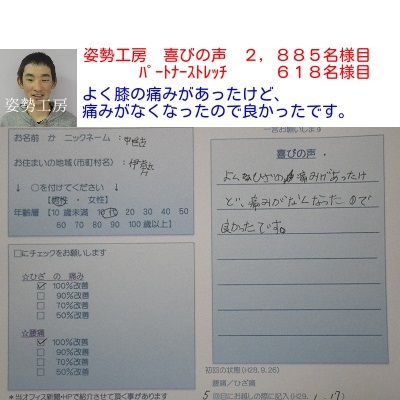 姿勢工房 喜びの声 2,885名様目
パートナーストレッチ 618名様目
姿勢工房
よく膝の痛みがあったけど、
痛みがなくなったので良かったです。
お名前 か ニックネーム:
お住まいの地域(市町村名)
↓ ○を付けてください ↓
【男性 ・ 女性】
年齢層【10歳未満 10代 20 30 40 50
60 70 80 90 100歳以上】
□にチェックをお願いします
☆ひざ の 痛み
☑ 100%改善
□ 90%改善
□ 70%改善
□ 50%改善
☆腰痛
☑ 100%改善
□ 90%改善
□ 70%改善
□ 50%改善
*当オフィス新聞・HPで紹介させて頂く事があります
一言お願いします
喜びの声・
よくひざの痛みがあったけ
ど、痛みがなくなったので
良かったです。
初回の状態(H28.9.26)
腰痛/ひざ痛
5回目にお越しの際に記入(H29.1.17)